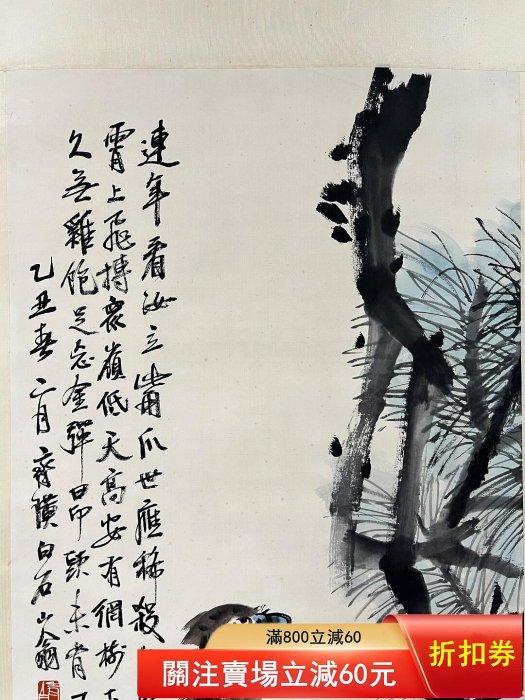 連年看汝立爪世應稱殺
霄上飛搏衆嶺低天高安有網
久無雞飽足忘金彈昂頭未肯
乙丑春二月齊璜白石山翁
滿800立減60
關注賣場立減60元
折扣券